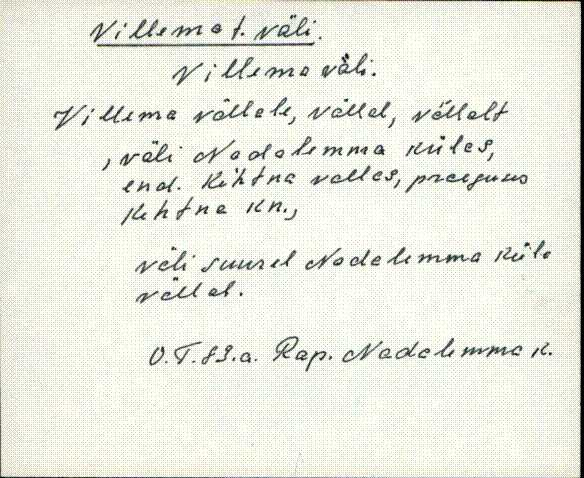 Villema t. väli.
Villema väli.
Villema vällale, vällal, vällalt
, väli Nadalemma külas,
end. Kehtna vallas, praeguses
Kehtna kn.,
väli suurel Nadalemma küla
vällal.
V.T. 89.a. Rap. Nadalemma k.